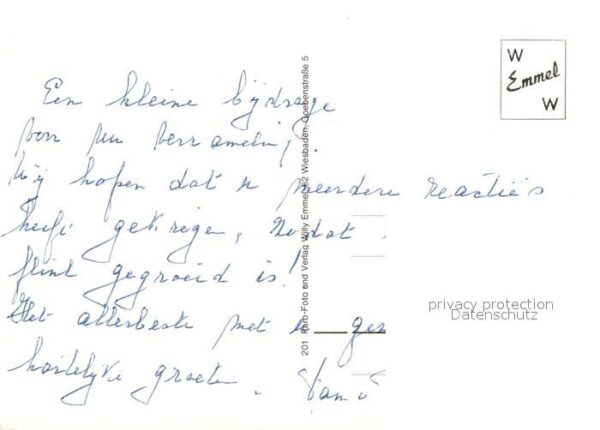 Een kleine bijdrage
voor uw verzameling,
Wij hopen dat u meerdere reacties
heeft gekregen, zodat
flink gegroeid is!
Het allerbeste met u
hartelijke groeten. Van
W
Emmel
W
201 Foto und Verlag Willy Emmel 62 Wiesbaden Goebenstraße 5
privacy protection
Datenschutz